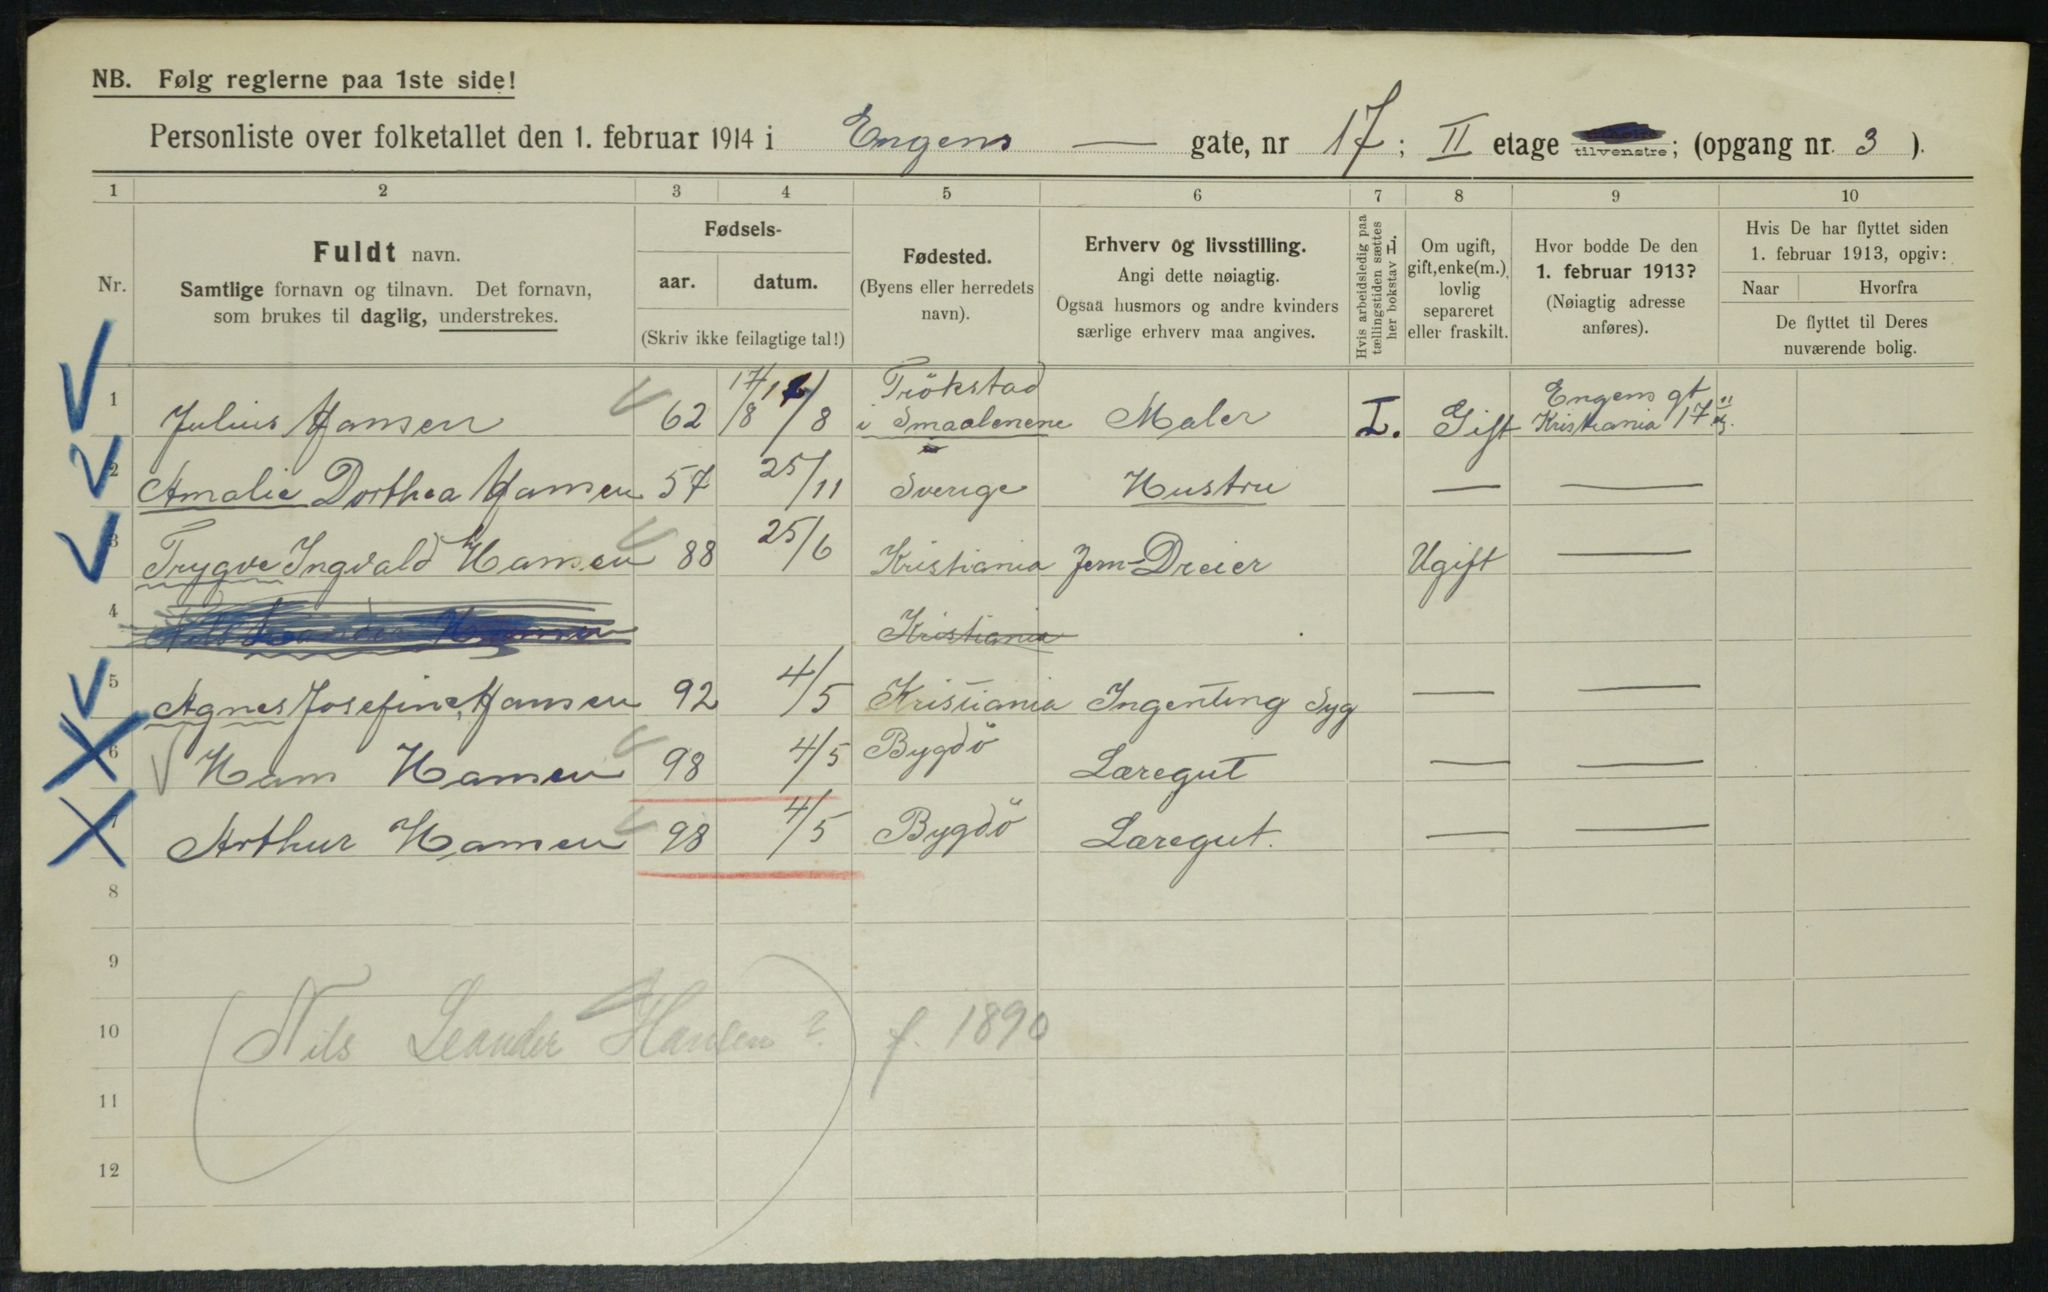 NB. Følg reglerne paa 1ste side!
Personliste over folketallet den 1. februar 1914 i Engens — gate, nr 17; II etage tilvenstre; (opgang nr. 3 ).
1 2 3 4 5 6 7 8 9 10
Nr.
Fuldt navn.
Samtlige fornavn og tilnavn. Det fornavn,
som brukes til daglig, understrekes.
Fødsels-
aar. datum.
(Skriv ikke feilagtige tal!)
Fødested.
(Byens eller herredets
navn).
Erhverv og livsstilling.
Angi dette nøiagtig.
Ogsaa husmors og andre kvinders
særlige erhverv maa angives.
Hvis arbeidsledig paa
tællingstiden sættes
her bokstav L.
Om ugift,
gift, enke(m.),
lovlig
separeret
eller fraskilt.
Hvor bodde De den
1. februar 1913?
(Nøiagtig adresse
anføres).
Hvis De har flyttet siden
1. februar 1913, opgiv:
Naar Hvorfra
De flyttet til Deres
nuværende bolig.
1 Julius Hansen 62 17/8 /8 Trökstad i Smaalenene Maler I. Gift Engens gt Kristiania 17
2 Amalie Dorthea Hansen 57 25/11 Sverige Hustru — —
3 Trygve Ingvald Hansen 88 25/6 Kristiania Jern-Dreier Ugift —
4 Kristiania
5 Agnes Josefine Hansen 92 4/5 Kristiania Ingenting Syg — —
6 Hans Hansen 98 4/5 Bygdö Læregut — —
7 Arthur Hansen 98 4/5 Bygdö Læregut. — —
8
9
10 (Nils Leander Hansen?) f. 1890
11
12